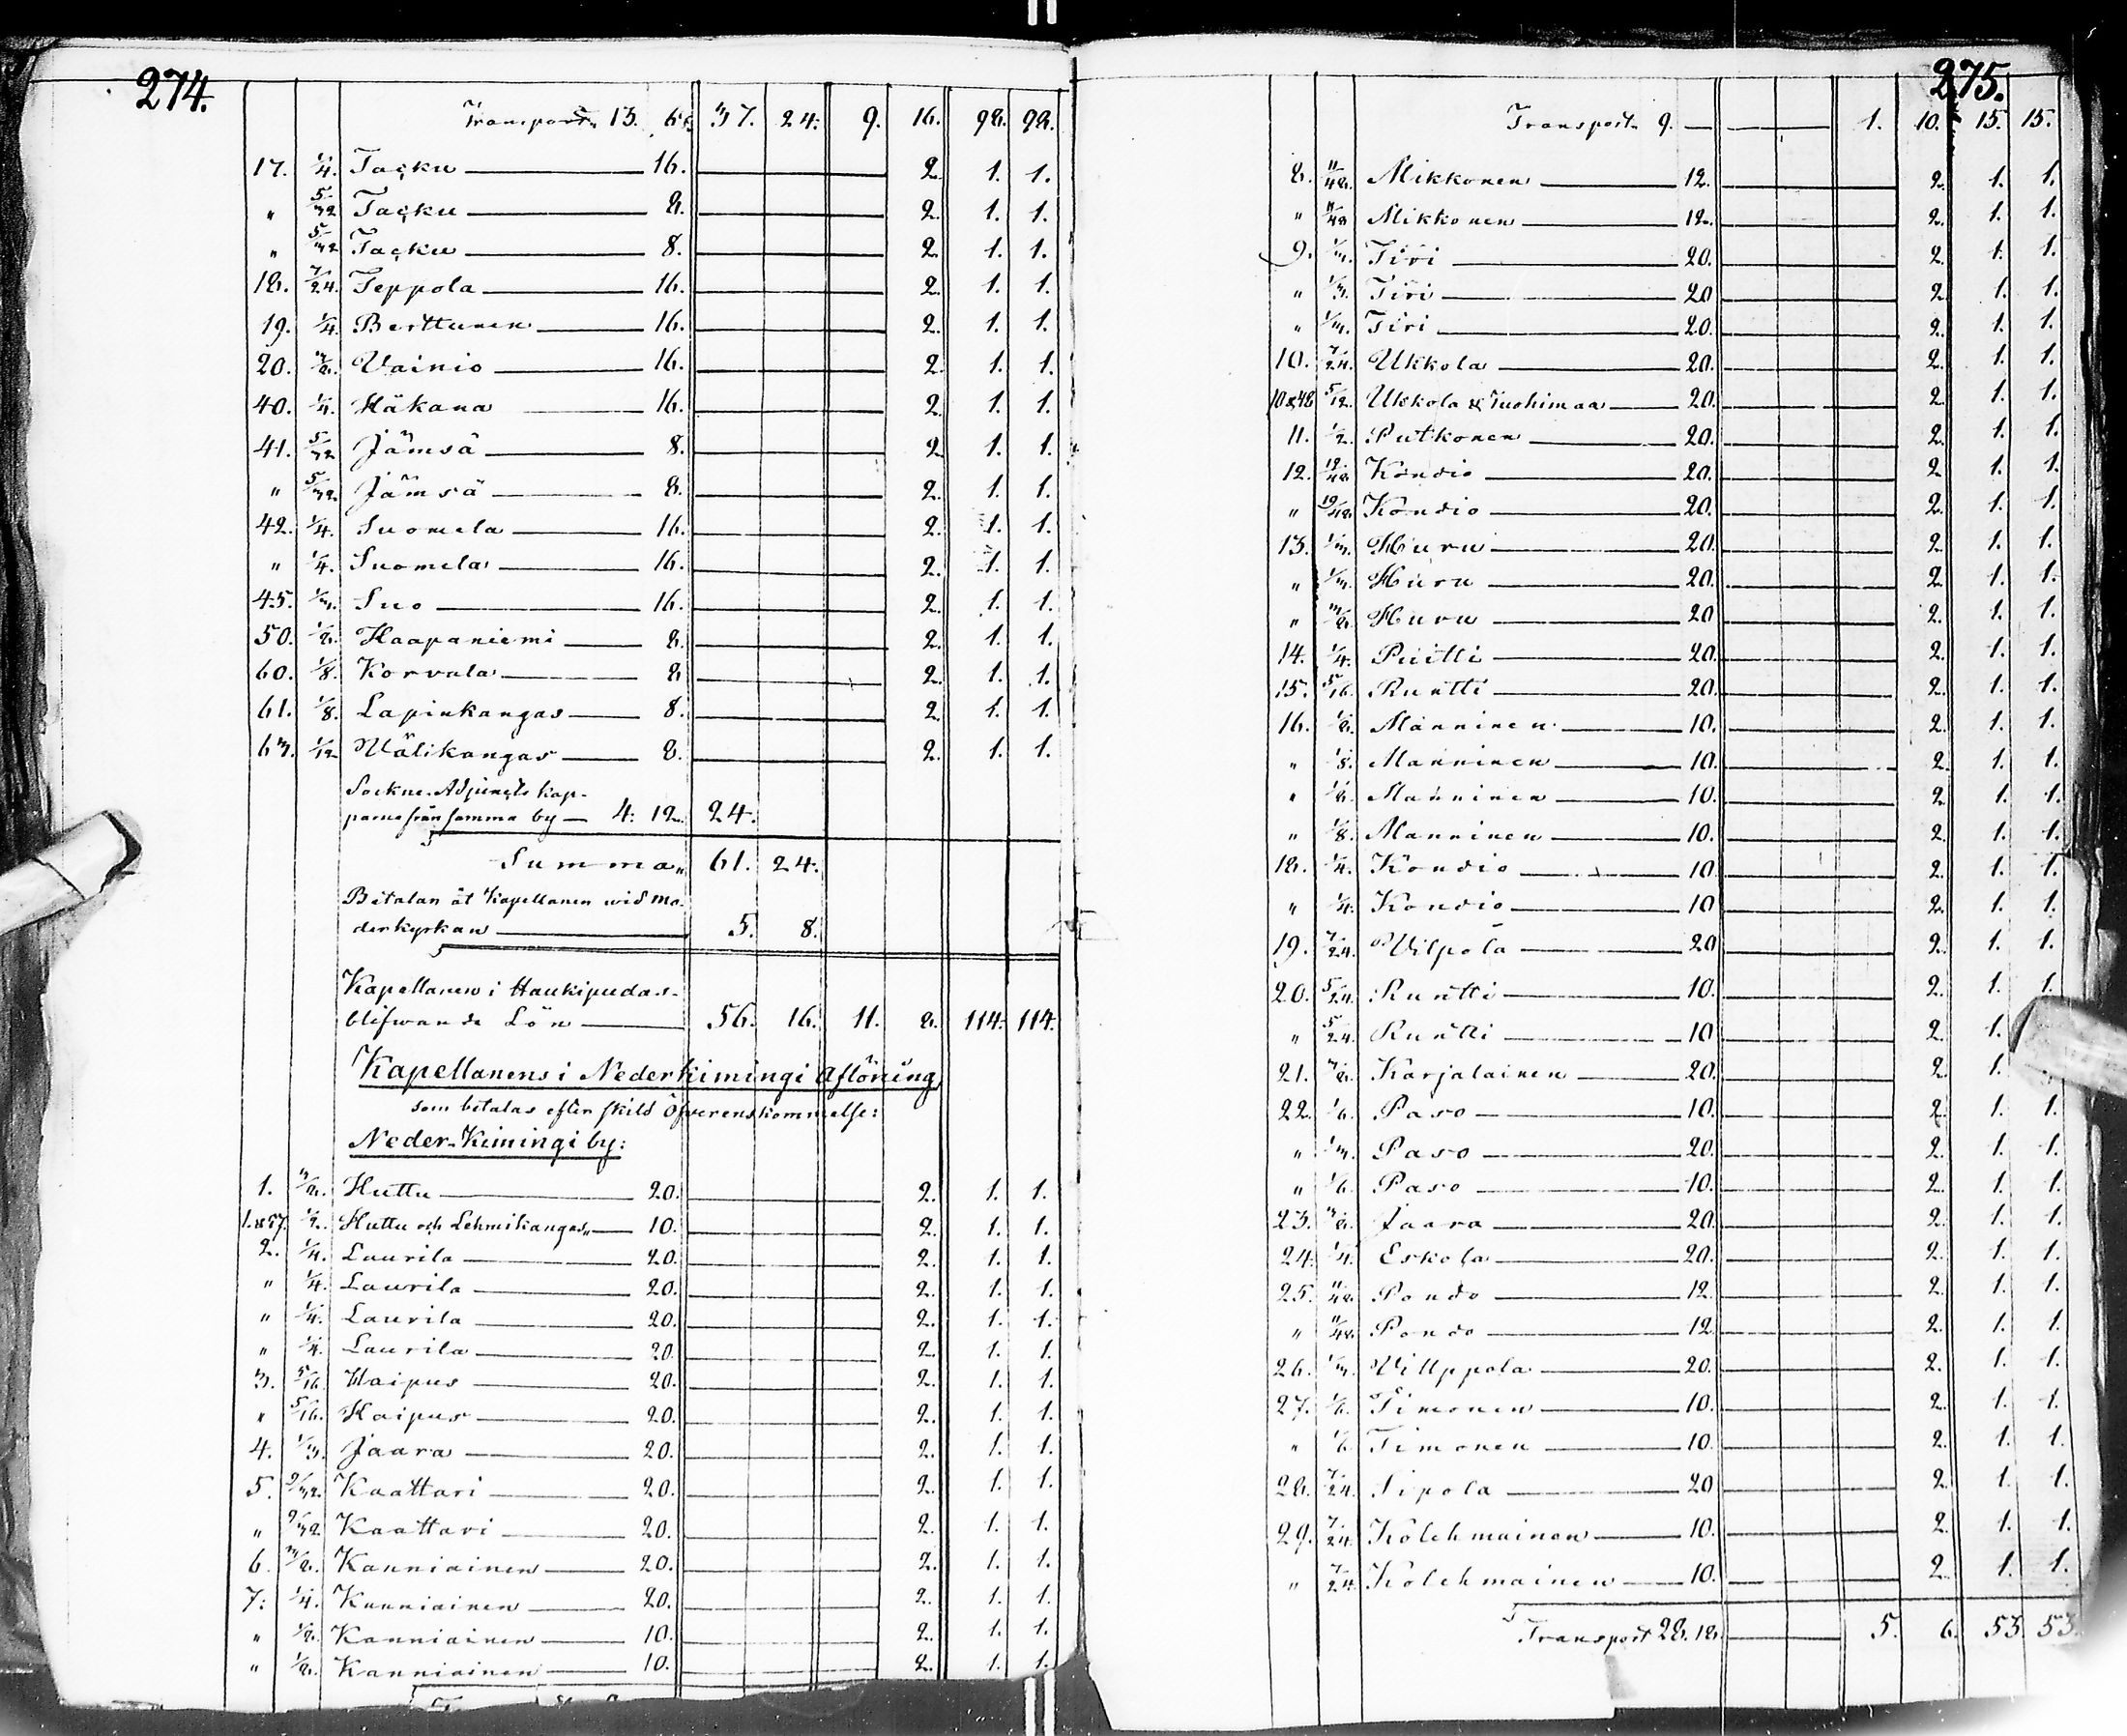 274.
Transport 13. 6. 37. 24. 9. 16. 98. 98.
17. 1/4. Tacku 16. 2. 1. 1.
" 5/32 Tacku 8. 2. 1. 1.
" 5/32 Tacku 8. 2. 1. 1.
18. 7/24. Teppola 16. 2. 1. 1.
19. 1/4. Berttunen 16. 2. 1. 1.
20. 3/8. Vainio 16. 2. 1. 1.
40. 1/4. Häkana 16. 2. 1. 1.
41. 5/32 Jämsä 8. 2. 1. 1.
" 5/32. Jämsä 8. 2. 1. 1.
42. 1/4. Suomela 16. 2. 1. 1.
" 1/4. Suomela 16. 2. 1. 1.
45. 1/3. Suo 16. 2. 1. 1.
50. 1/8. Haapaniemi 8. 2. 1. 1.
60. 1/8. Korvala 8 2. 1. 1.
61. 1/8. Lapinkangas 8. 2. 1. 1.
63. 1/12 Wälikangas 8. 2. 1. 1.
Sockne-Adjuncts kap-
parne från samma by 4: 12. 24.
Summa 61. 24.
Betalan åt Kapellanen wid mo-
derkyrkan 5. 8.
Kapellanen i Haukipudas
blifwande Lön 56. 16. 11. 8. 114. 114.
Kapellanens i Nederkimingi Aflöning
som betalas efter skild Öfverenskommelse:
Neder-Kimingi by:
1. 3/8. Huttu 20. 2. 1. 1.
1. & 57. 1/2. Huttu och Lehmikangas 10. 2. 1. 1.
2. 1/4. Laurila 20. 2. 1. 1.
" 1/4. Laurila 20. 2. 1. 1.
" 1/4. Laurila 20. 2. 1. 1.
" 1/4. Laurila 20. 2. 1. 1.
3. 5/16 Haipus 20. 2. 1. 1.
" 5/16. Haipus 20. 2. 1. 1.
4. 1/3. Jaara 20. 2. 1. 1.
5. 9/32. Kaattari 20. 2. 1. 1.
" 9/32 Kaattari 20. 2. 1. 1.
6. 3/8. Kanniainen 20. 2. 1. 1.
7. 1/4. Kanniainen 20. 2. 1. 1.
" 1/8. Kanniainen 10. 2. 1. 1.
" 1/8. Kanniainen 10. 2. 1. 1.
275.
Transport 9. 1. 10. 15. 15.
8. 11/48. Mikkonen 12. 2. 1. 1.
" 11/48 Mikkonen 12. 2. 1. 1.
9. 1/3. Tiri 20. 2. 1. 1.
" 1/3. Tiri 20 2. 1. 1.
" 1/3. Tiri 20. 2. 1. 1.
10. 7/24. Ukkola 20. 2. 1. 1.
10 & 48 5/12. Ukkola & Tuohimaa 20. 2. 1. 1.
11. 1/2. Putkonen 20. 2. 1. 1.
12. 19/48 Kondio 20. 2. 1. 1.
" 19/48. Kondio 20. 2. 1. 1.
13. 1/3. Huru 20. 2. 1. 1.
" 1/3. Huru 20. 2. 1. 1.
" 3/8. Huru 20 2. 1. 1.
14. 1/4. Puitti 20. 2. 1. 1.
15. 5/16. Runtti 20. 2. 1. 1.
16. 1/8. Manninen 10. 2. 1. 1.
" 1/8. Manninen 10. 2. 1. 1.
" 1/8. Manninen 10. 2. 1. 1.
" 1/8. Manninen 10. 2. 1. 1.
18. 1/4. Kondio 10 2. 1. 1.
" 1/4. Kondio 10 2. 1. 1.
19. 7/24. Vilpola 20 2. 1. 1.
20. 5/24. Runtti 10. 2. 1. 1.
" 5/24. Runtti 10 2. 1.
21. 3/8. Karjalainen 20. 2. 1.
22. 1/6. Paso 10. 2. 1. 1.
" 1/3. Paso 20. 2. 1. 1.
" 1/6. Paso 10. 2. 1. 1.
23. 3/8. Jaara 20. 2. 1. 1.
24. 1/4. Eskola 20. 2. 1. 1.
25. 11/48. Pondo 12. 2. 1. 1.
" 11/48. Pondo 12. 2. 1. 1.
26. 1/3. Villppola 20. 2. 1. 1.
27. 1/6. Timonen 10. 2. 1. 1.
" 1/6 Timonen 10. 2. 1. 1.
28. 7/24. Sipola 20 2. 1. 1.
29. 7/24. Kolehmainen 10. 2. 1. 1.
" 7/24. Kolehmainen 10. 2. 1. 1.
Transport 28. 18. 5. 6. 53 53.